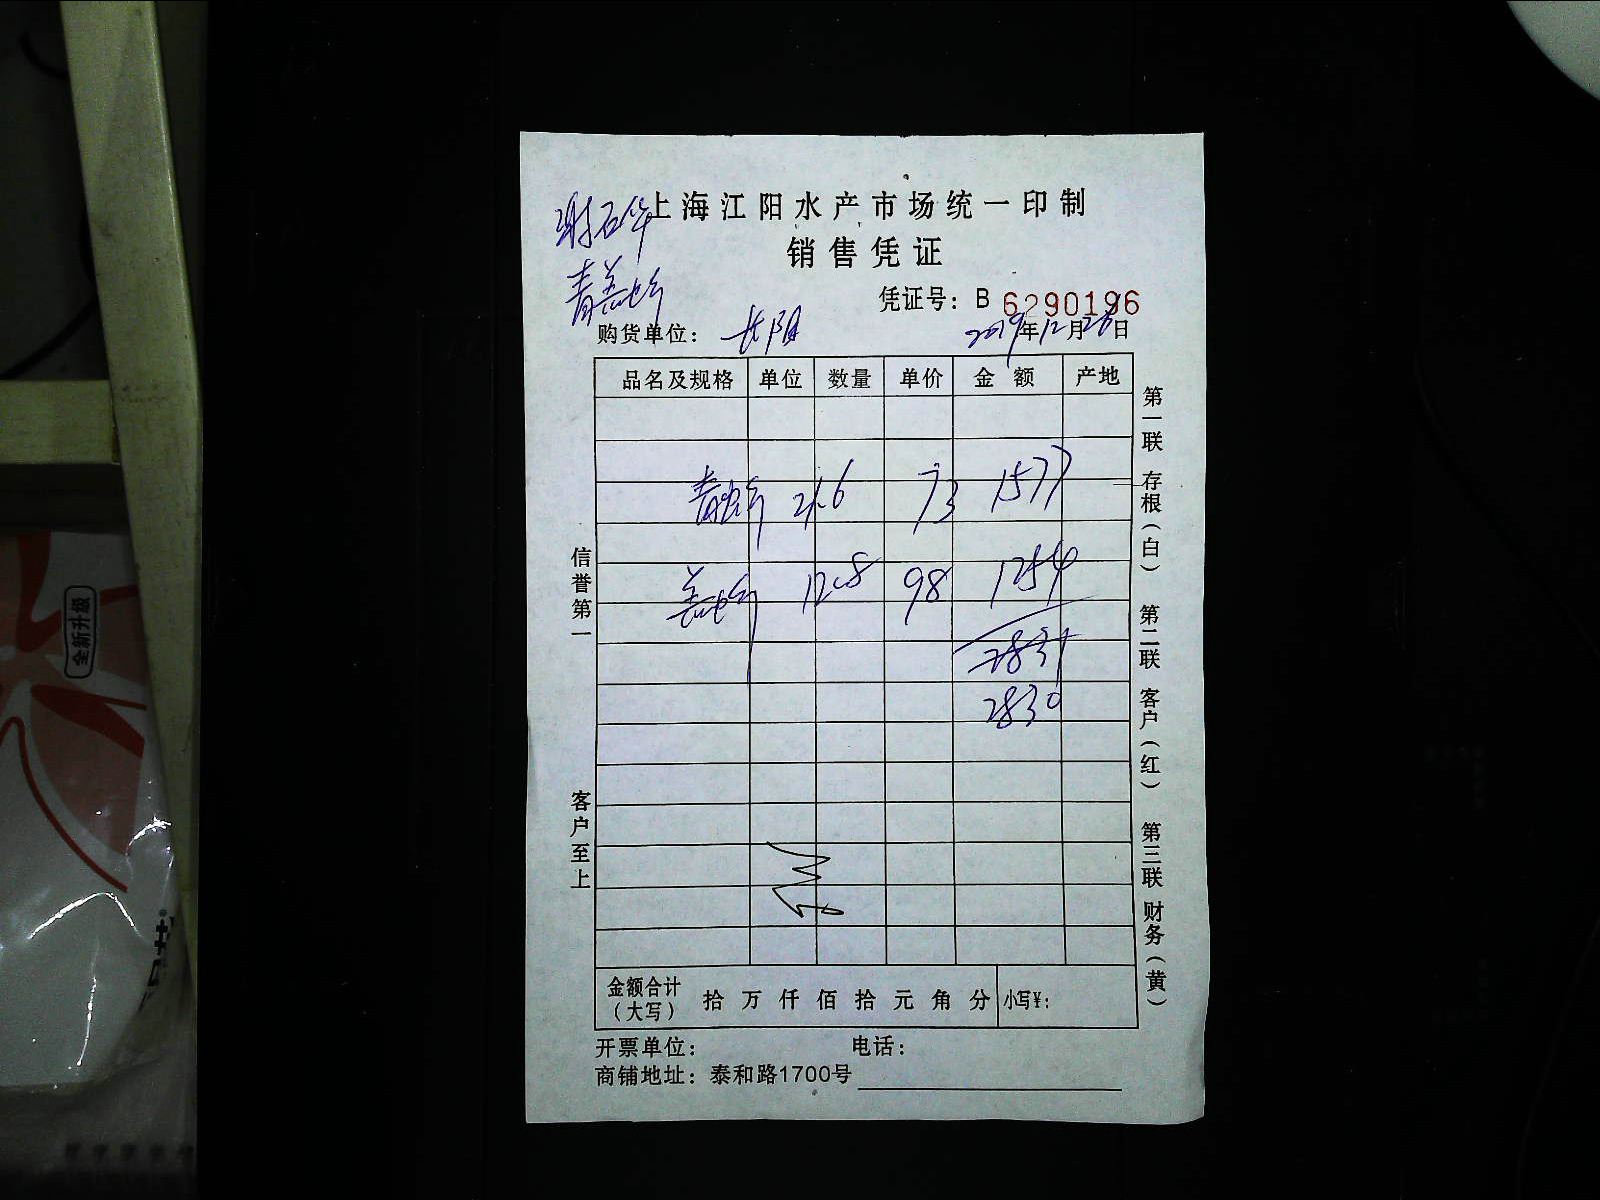 上海江阳水产市场统一印制
销售凭证
凭证号：B 6290196
购货单位：长阳 2019年12月26日
品名及规格 单位 数量 单价 金额 产地
21.6 73 1577
12.8 98 1254
2831
2830
金额合计（大写） 拾 万 仟 佰 拾 元 角 分 小写¥：
开票单位： 电话：
商铺地址：泰和路1700号
信誉第一
客户至上
第一联 存根（白） 第二联 客户（红） 第三联 财务（黄）
全新升级